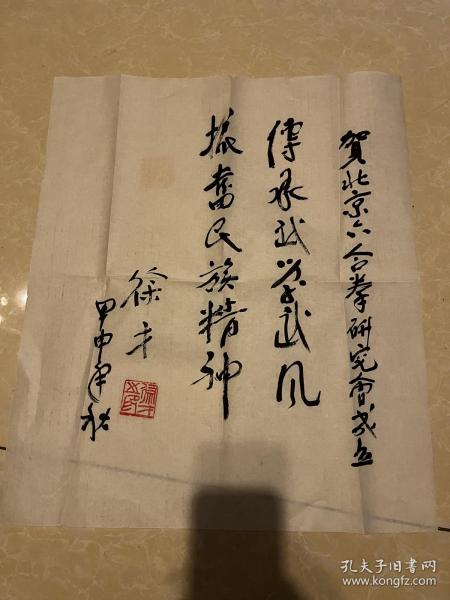 賀北京六合拳研究會成立
傳承武学武风
振奮民族精神
徐才
甲申年秋
孔夫子旧书网
www.kongfz.com